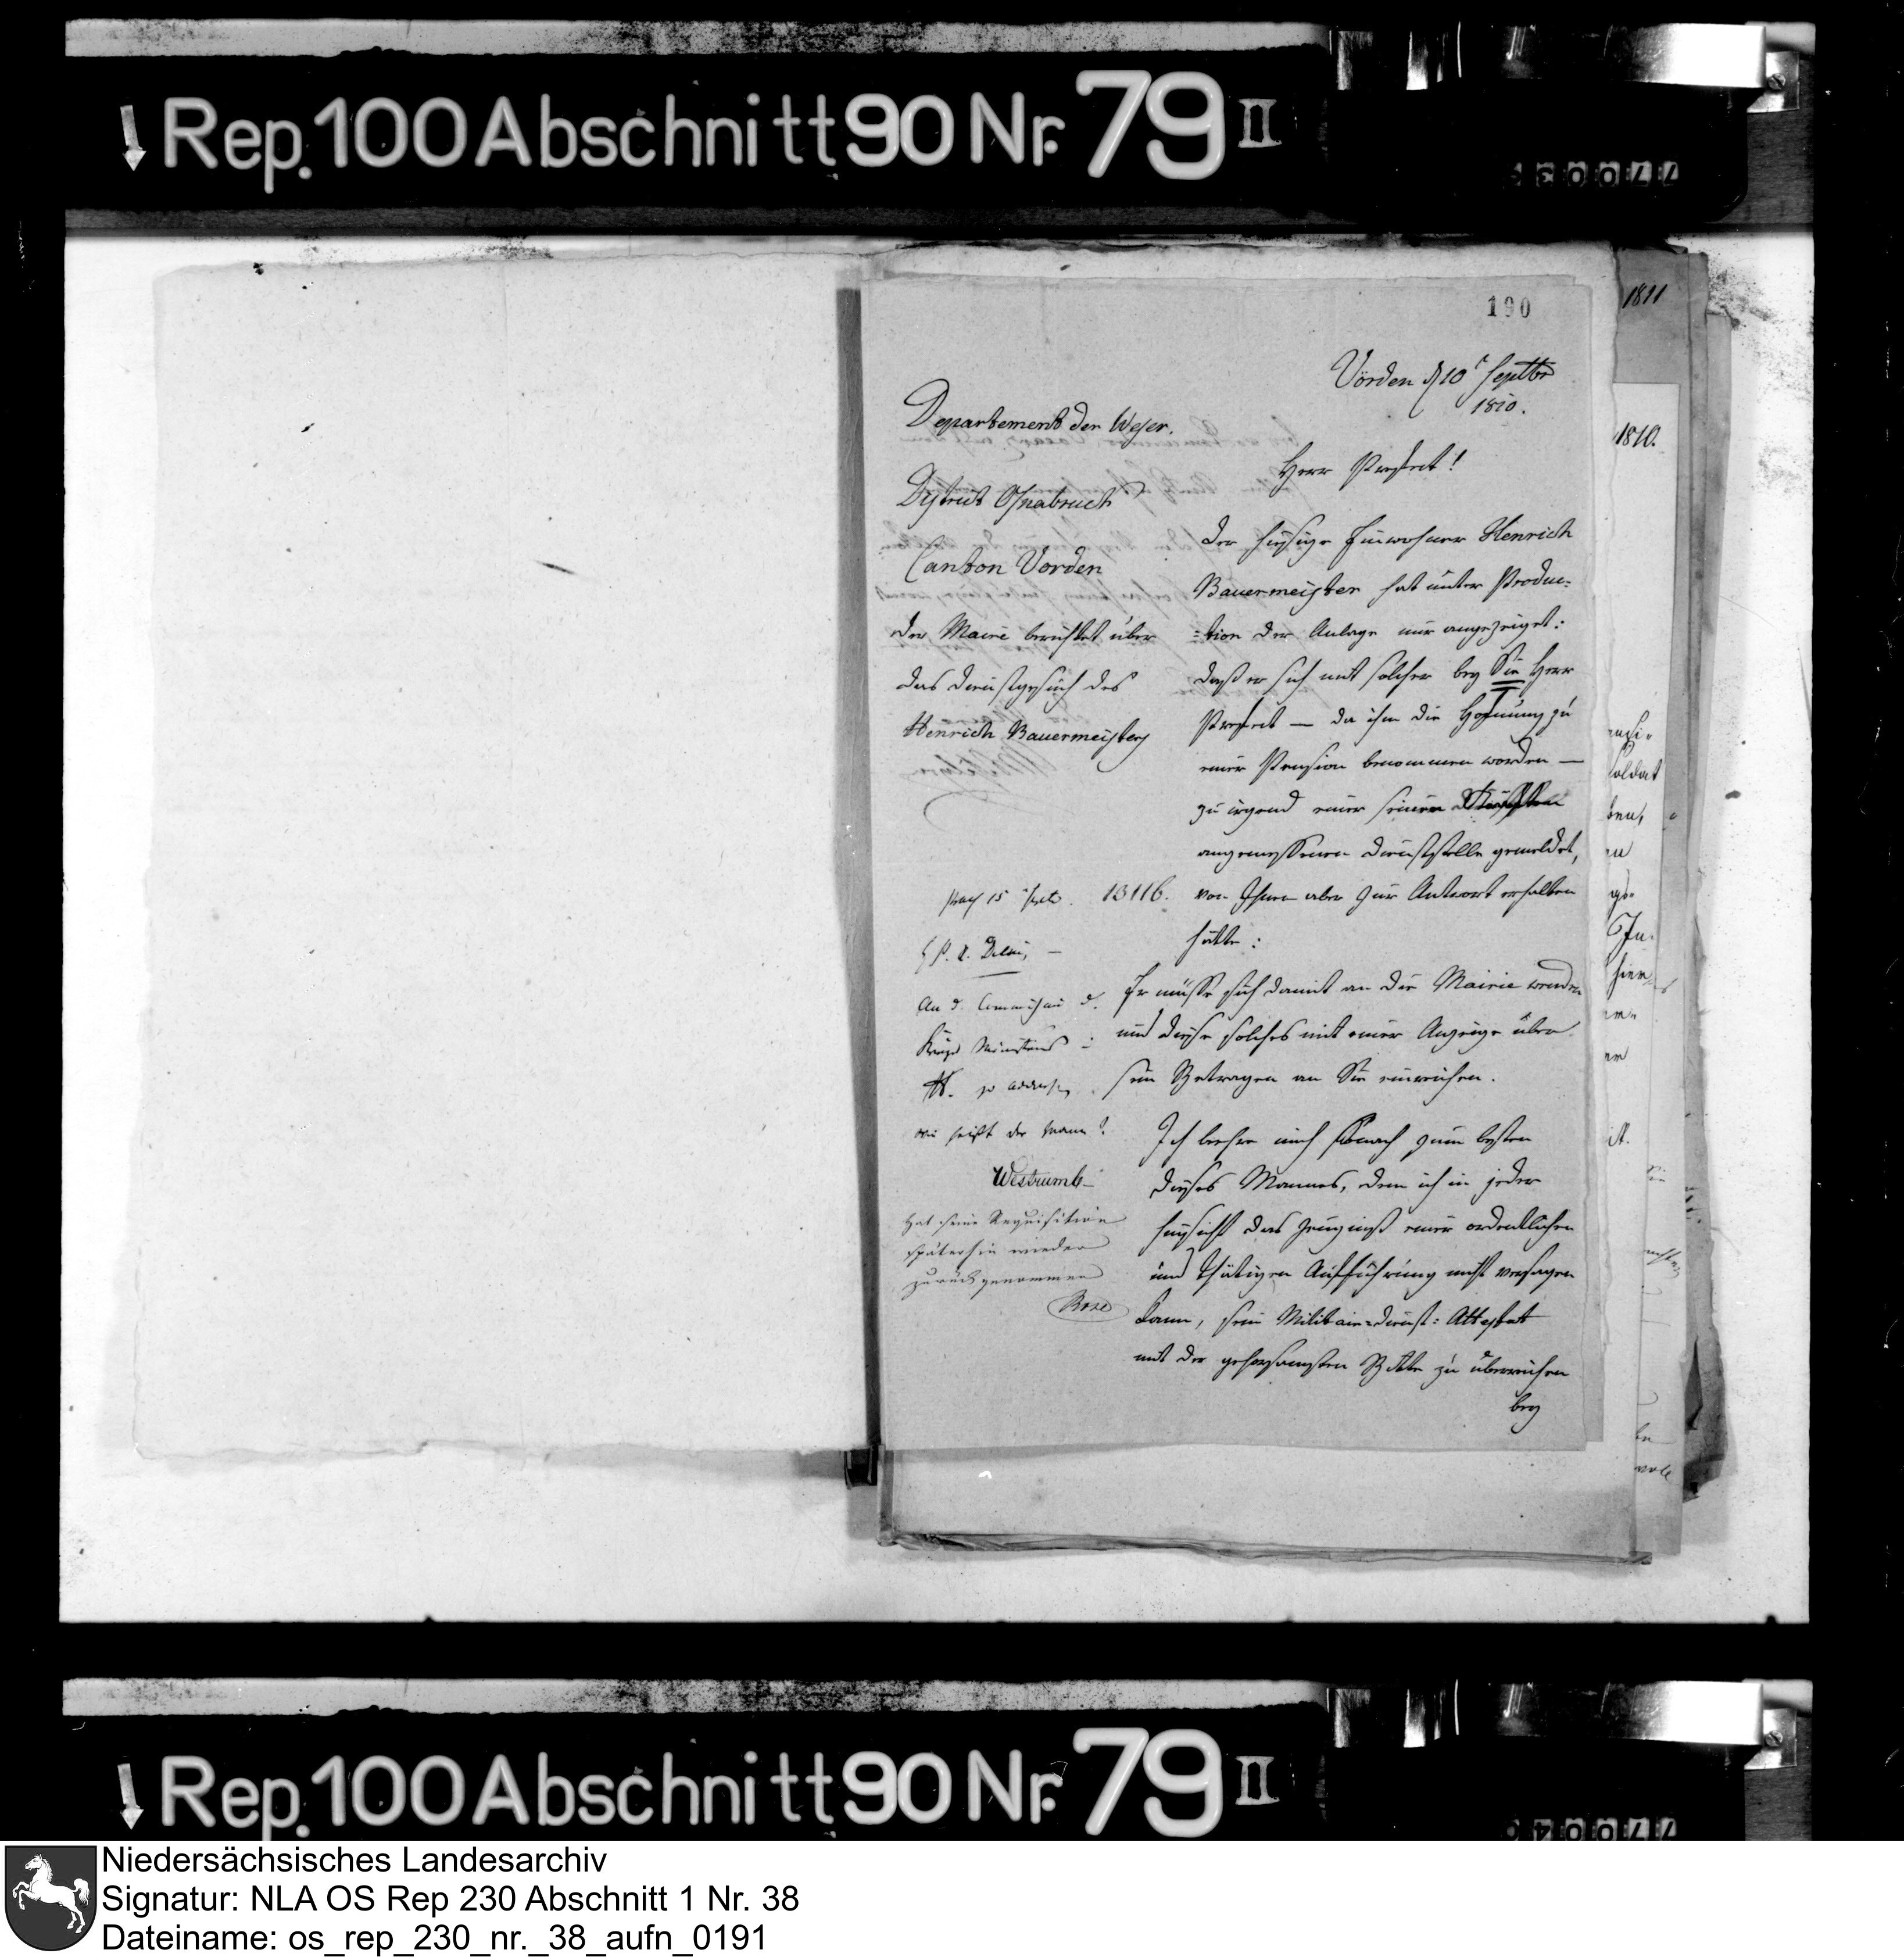 Rep. 100 Abschnitt 90 Nr. 79 II
190
1811
1810.
Vörden d 10t Septbr
1810.
Departement der Weser.
District Osnabruck
Canton Vörden
der Maire berichtet über
das Dienstgesuch des
Henrich Bauermeister
Herr Praefect!
Der hiesige Einwohner Henrich
Bauermeister hat unter Produc=
=tion der Anlage mir angezeiget:
daß er sich mit solcher bey Sie Herr
Praefect — da ihm die Hofnung zu
einer Pension benommen worden —
zu irgend einer seinen
angemessenen Dienststelle gemeldet,
von Ihnen aber zur Antwort erhalten
hätte:
Er müsse sich damit an die Mairie wenden
und diese solches mit einer Anzeige über
sein Betragen an Sie einreichen.
Ich beehre mich hienach zum besten
dieses Mannes, dem ich in jeder
Hinsicht das Zeugniß einer ordentlichen
und thätigen Aufführung nicht versagen
kann, sein Militair=Dienst=Attestat
mit der gehorsamsten Bitte zu überreichen
bey
13116.
An d.
wie heißt der Mann?
Westrumb
Hat seine Requisition
späterhin wieder
zurückgenommen
Rep. 100 Abschnitt 90 Nr. 79 II
Niedersächsisches Landesarchiv
Signatur: NLA OS Rep 230 Abschnitt 1 Nr. 38
Dateiname: os_rep_230_nr._38_aufn_0191